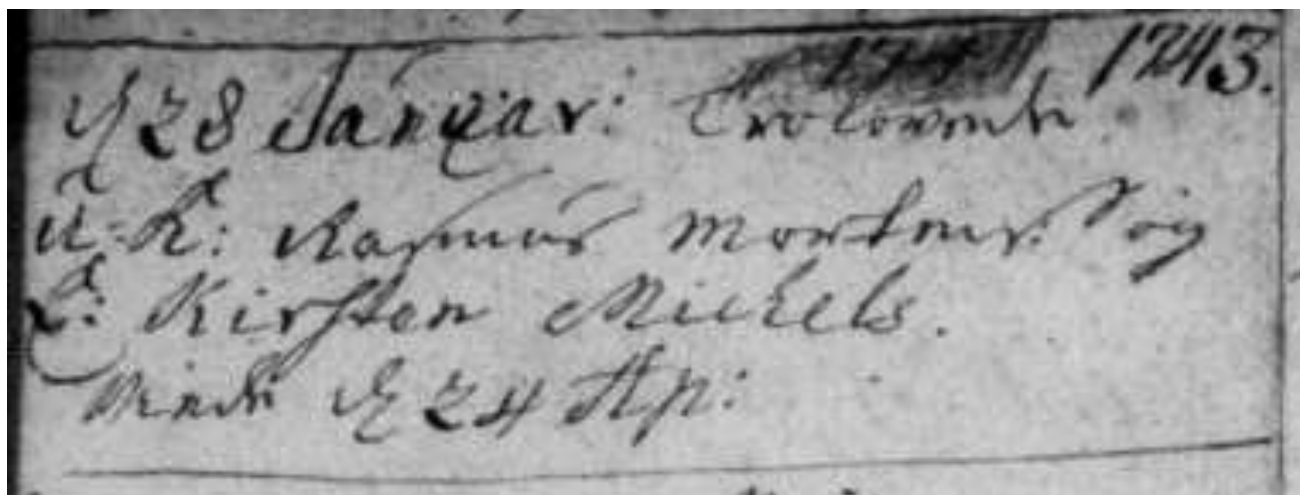 1743.
d 28 Januar: Trolovede
U. K: Rasmus Mortens. og
P: Kirsten Michels.
Viede d 24 Ap: